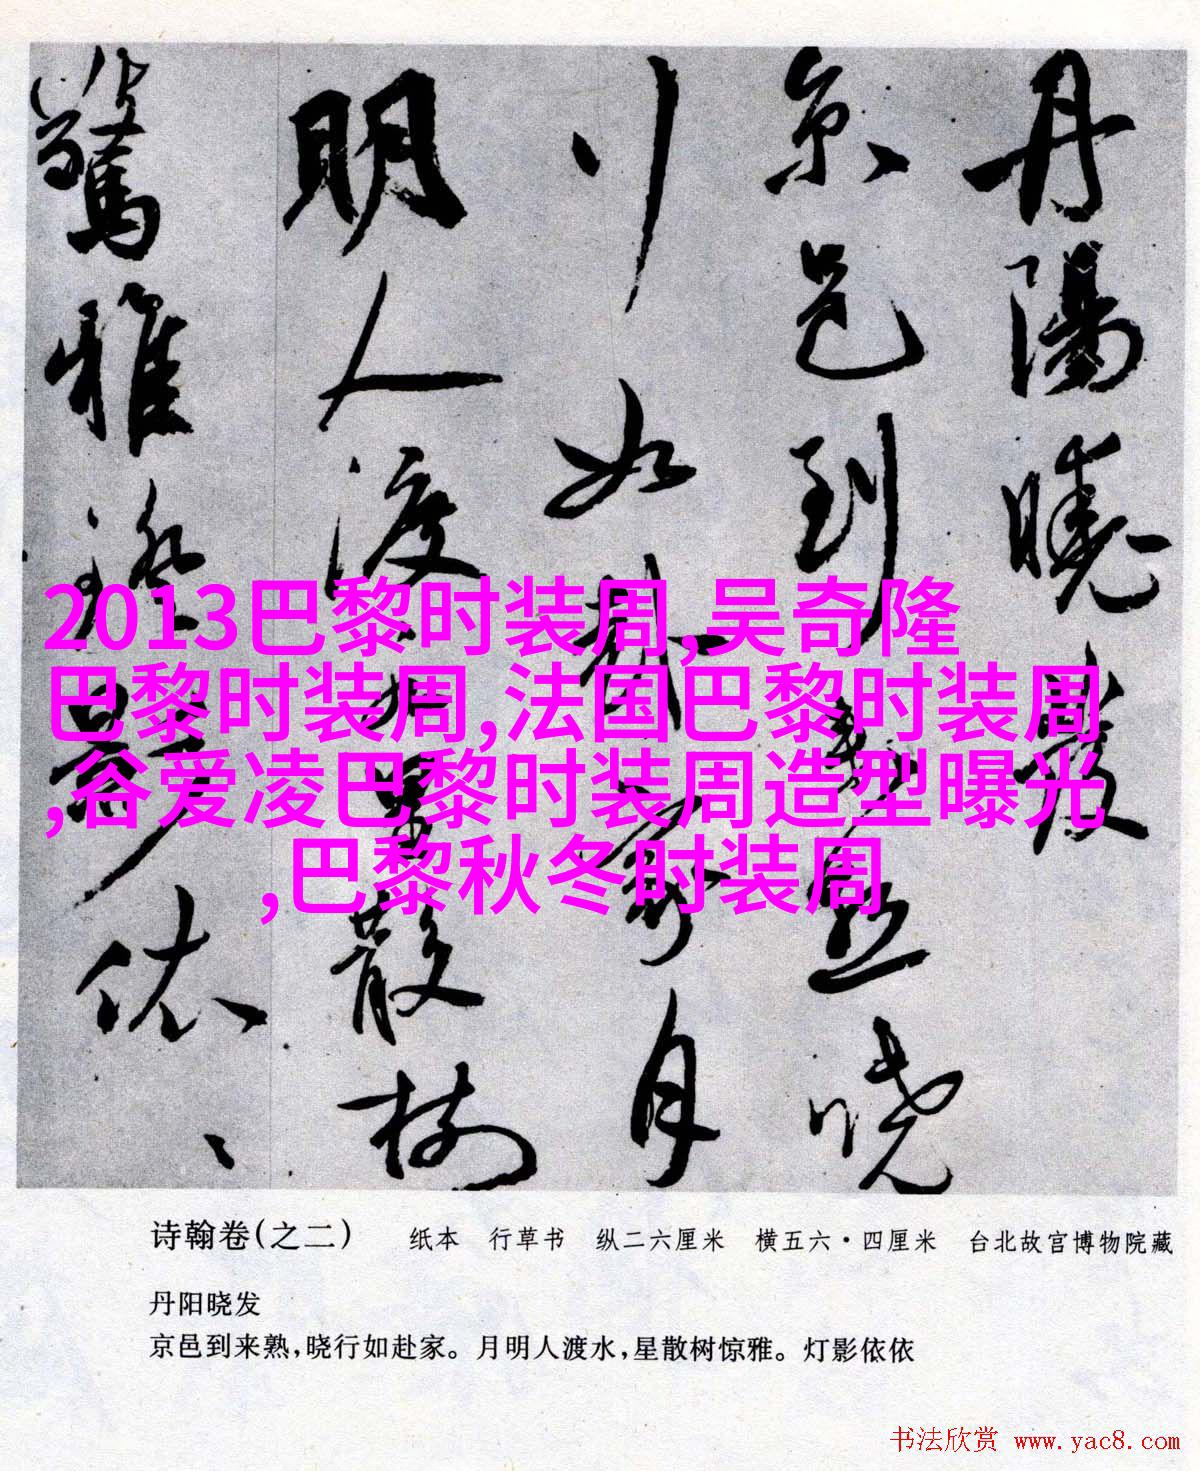 丹陽曉發
京邑到来熟曉
行如赴家月
明人渡水星散樹
驚雅燈影依、、
2013巴黎时装周,吴奇隆
巴黎时装周,法国巴黎时装周
,谷爱凌巴黎时装周造型曝光
,巴黎秋冬时装周
诗翰卷(之二) 纸本 行草书 纵二六厘米 横五六·四厘米 台北故宫博物院藏
丹阳晓发
京邑到来熟,晓行如赴家。月明人渡水,星散树惊雅。灯影依依
书法欣赏 www.yac8.com